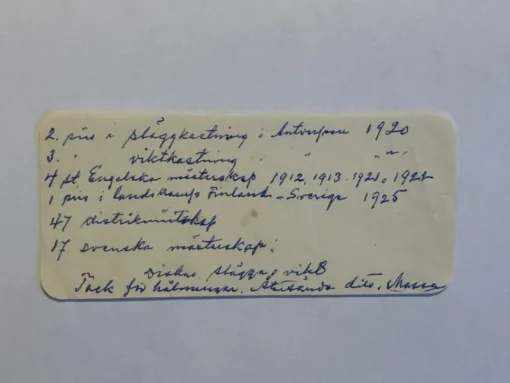 2. pris i släggkastning i Antverpen 1920
3. " viktkastning " " ~ "
4 st Engelska mästerskap 1912, 1913 - 1921 o 1924
1 pris i landskamp Finland - Sverige 1925
47 distriktmästskap
17 svenska mästerskap:
Diskus slägga, vikt
Tack för hälsningar. Återsända dito.